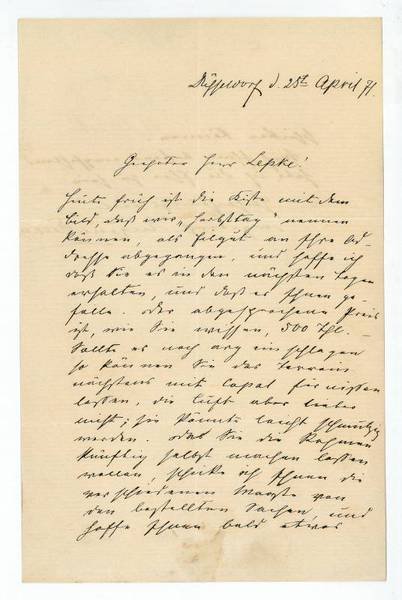 Düsseldorf d. 25t April 71.
Geehrter Herr Lepke!
Heute früh ist die Kiste mit dem
Bild, daß wir „Herbsttag“ nennen
können, als Eilgut an Ihre Ad-
dresse abgegangen, und hoffe ich
daß Sie es in den nächsten Tagen
erhalten, und daß es Ihnen ge-
falle. Der abgesprochene Preis
ist, wie Sie wissen, 500 Thl. –
Sollte es noch arg einschlagen
so können Sie das Terrain
nächstens mit Copal firnissen
lassen, die Luft aber lieber
nicht; sie könnte leicht schmutzig
werden. Daß Sie die Rahmen
künftig selbst machen lassen
wollen, schicke ich Ihnen die
verschiedenen Maaße von
den bestellten Sachen, und
hoffe Ihnen bald etwas